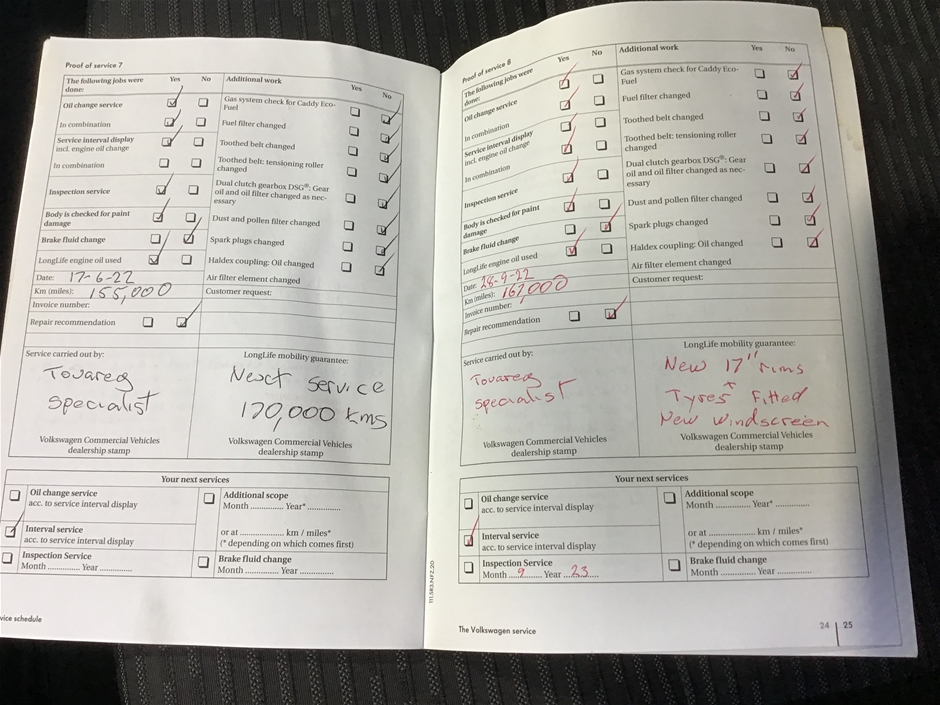 Proof of service 7
The following jobs were done: Yes No
Oil change service
In combination
Service interval display
incl. engine oil change
In combination
Inspection service
Body is checked for paint
damage
Brake fluid change
LongLife engine oil used
Date: 17-6-22
Km (miles): 155,000
Invoice number:
Repair recommendation
Additional work Yes No
Gas system check for Caddy Eco-
Fuel
Fuel filter changed
Toothed belt changed
Toothed belt: tensioning roller
changed
Dual clutch gearbox DSG®: Gear
oil and oil filter changed as nec-
essary
Dust and pollen filter changed
Spark plugs changed
Haldex coupling: Oil changed
Air filter element changed
Customer request:
Service carried out by:
Touareg
specialist
Volkswagen Commercial Vehicles
dealership stamp
LongLife mobility guarantee:
Nexct service
170,000 kms
Volkswagen Commercial Vehicles
dealership stamp
Your next services
Oil change service
acc. to service interval display
Interval service
acc. to service interval display
Inspection Service
Month ............ Year ............
Additional scope
Month ............ Year* ............
or at ............ km / miles*
(* depending on which comes first)
Brake fluid change
Month ............ Year ............
vice schedule
111.5R3.NFZ.20
Proof of service 8
The following jobs were
done: Yes No
Oil change service
In combination
Service interval display
incl. engine oil change
In combination
Inspection service
Body is checked for paint
damage
Brake fluid change
LongLife engine oil used
Date: 28-9-22
Km (miles): 167,000
Invoice number:
Repair recommendation
Additional work Yes No
Gas system check for Caddy Eco-
Fuel
Fuel filter changed
Toothed belt changed
Toothed belt: tensioning roller
changed
Dual clutch gearbox DSG®: Gear
oil and oil filter changed as nec-
essary
Dust and pollen filter changed
Spark plugs changed
Haldex coupling: Oil changed
Air filter element changed
Customer request:
Service carried out by:
Touareg
specialist
Volkswagen Commercial Vehicles
dealership stamp
LongLife mobility guarantee:
New 17" rims
+
Tyres Fitted
New windscreen
Volkswagen Commercial Vehicles
dealership stamp
Your next services
Oil change service
acc. to service interval display
Interval service
acc. to service interval display
Inspection Service
Month 9 Year 23
Additional scope
Month ............ Year* ............
or at ............ km / miles*
(* depending on which comes first)
Brake fluid change
Month ............ Year ............
The Volkswagen service
24 | 25